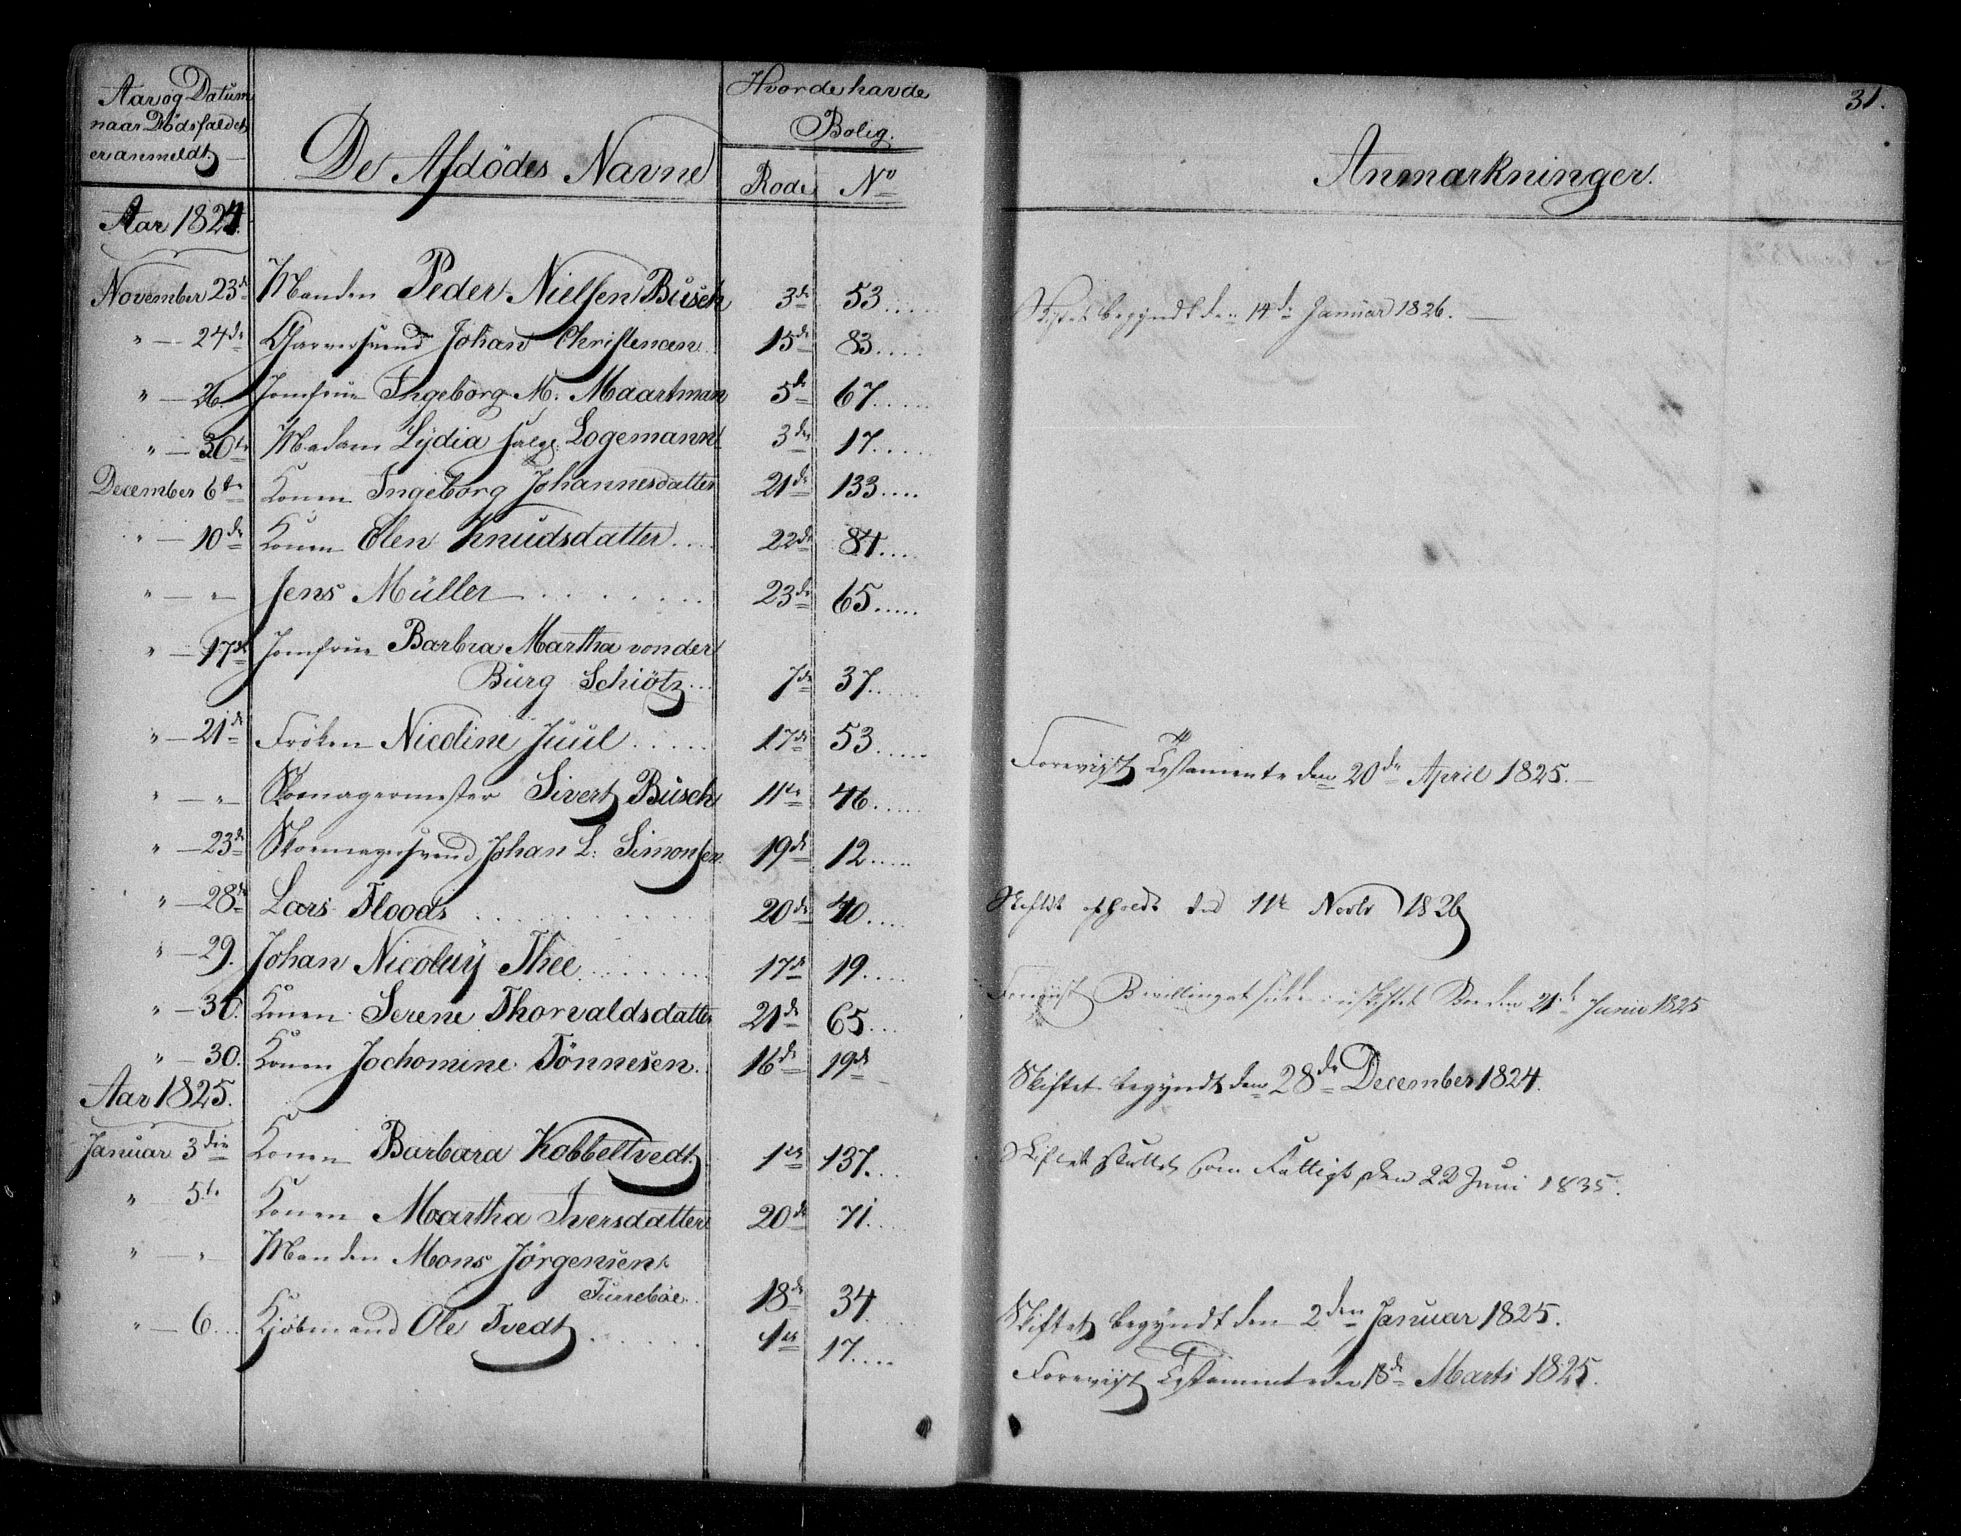 Aar og Datum
naar Dödsfaldet
er anmeldt.
De Afdödes Navne
Hvor de havde
Bolig.
Rode No
Anmærkninger.
31.
Aar 1824.
November 23de Manden Peder Nielsen Busch 3de 53.... Skiftet begyndt den 14de Januar 1826.
" — 24de Garversvend Johan Christensen 15de 83....
" — 26. Jomfrue Ingeborg M. Maartman 5te 67.....
" — 30te Madam Lydia salg. Logemann 3de 17.....
December 6te Konen Ingeborg Johannesdatter 21de 133....
" — 10de Konen Elen Knudsdatter.... 22de 84....
" — " — Jens Müller 23de 65.....
" — 17de Jomfrue Barbra Martha von der
Burg Schiötz... 7de 37.....
" — 21de Fröken Nicoline Juul..... 17de 53..... Foreviist Testamente den 20de April 1825.
" — " — Skomagermester Sivert Busch 11te 46.....
" — 23de Skomagersvend Johan L. Simonsen 19de 12.....
" — 28de Lars Floods 20de 40.... Skiftet afholdt den 11te Novbr 1826
" — 29. Johan Nicolay Thee 17de 19.... Foreviist Bevilling at sidde i uskiftet Boe den 21de Junii 1825
" — 30. Konen Serene Thorvaldsdatter 21de 65...
" — 30. Konen Jochomine Tönnesen.. 16de 19de Skiftet begyndt den 28de December 1824.
Aar 1825.
Januar 3die Konen Barbara Kobbeltvedt 1te 137.... Skiftet sluttet som Fattigt den 22 Juni 1835.
" — 5te Konen Martha Iversdatter 20de 71....
" — " — Manden Mons Jörgensen
Turreböe.. 18de 34.... Skiftet begyndt den 2den Januar 1825.
" — 6... Kjöbmand Ole Tvedt 1te 17.... Foreviist Testamente den 18de Marts 1825.